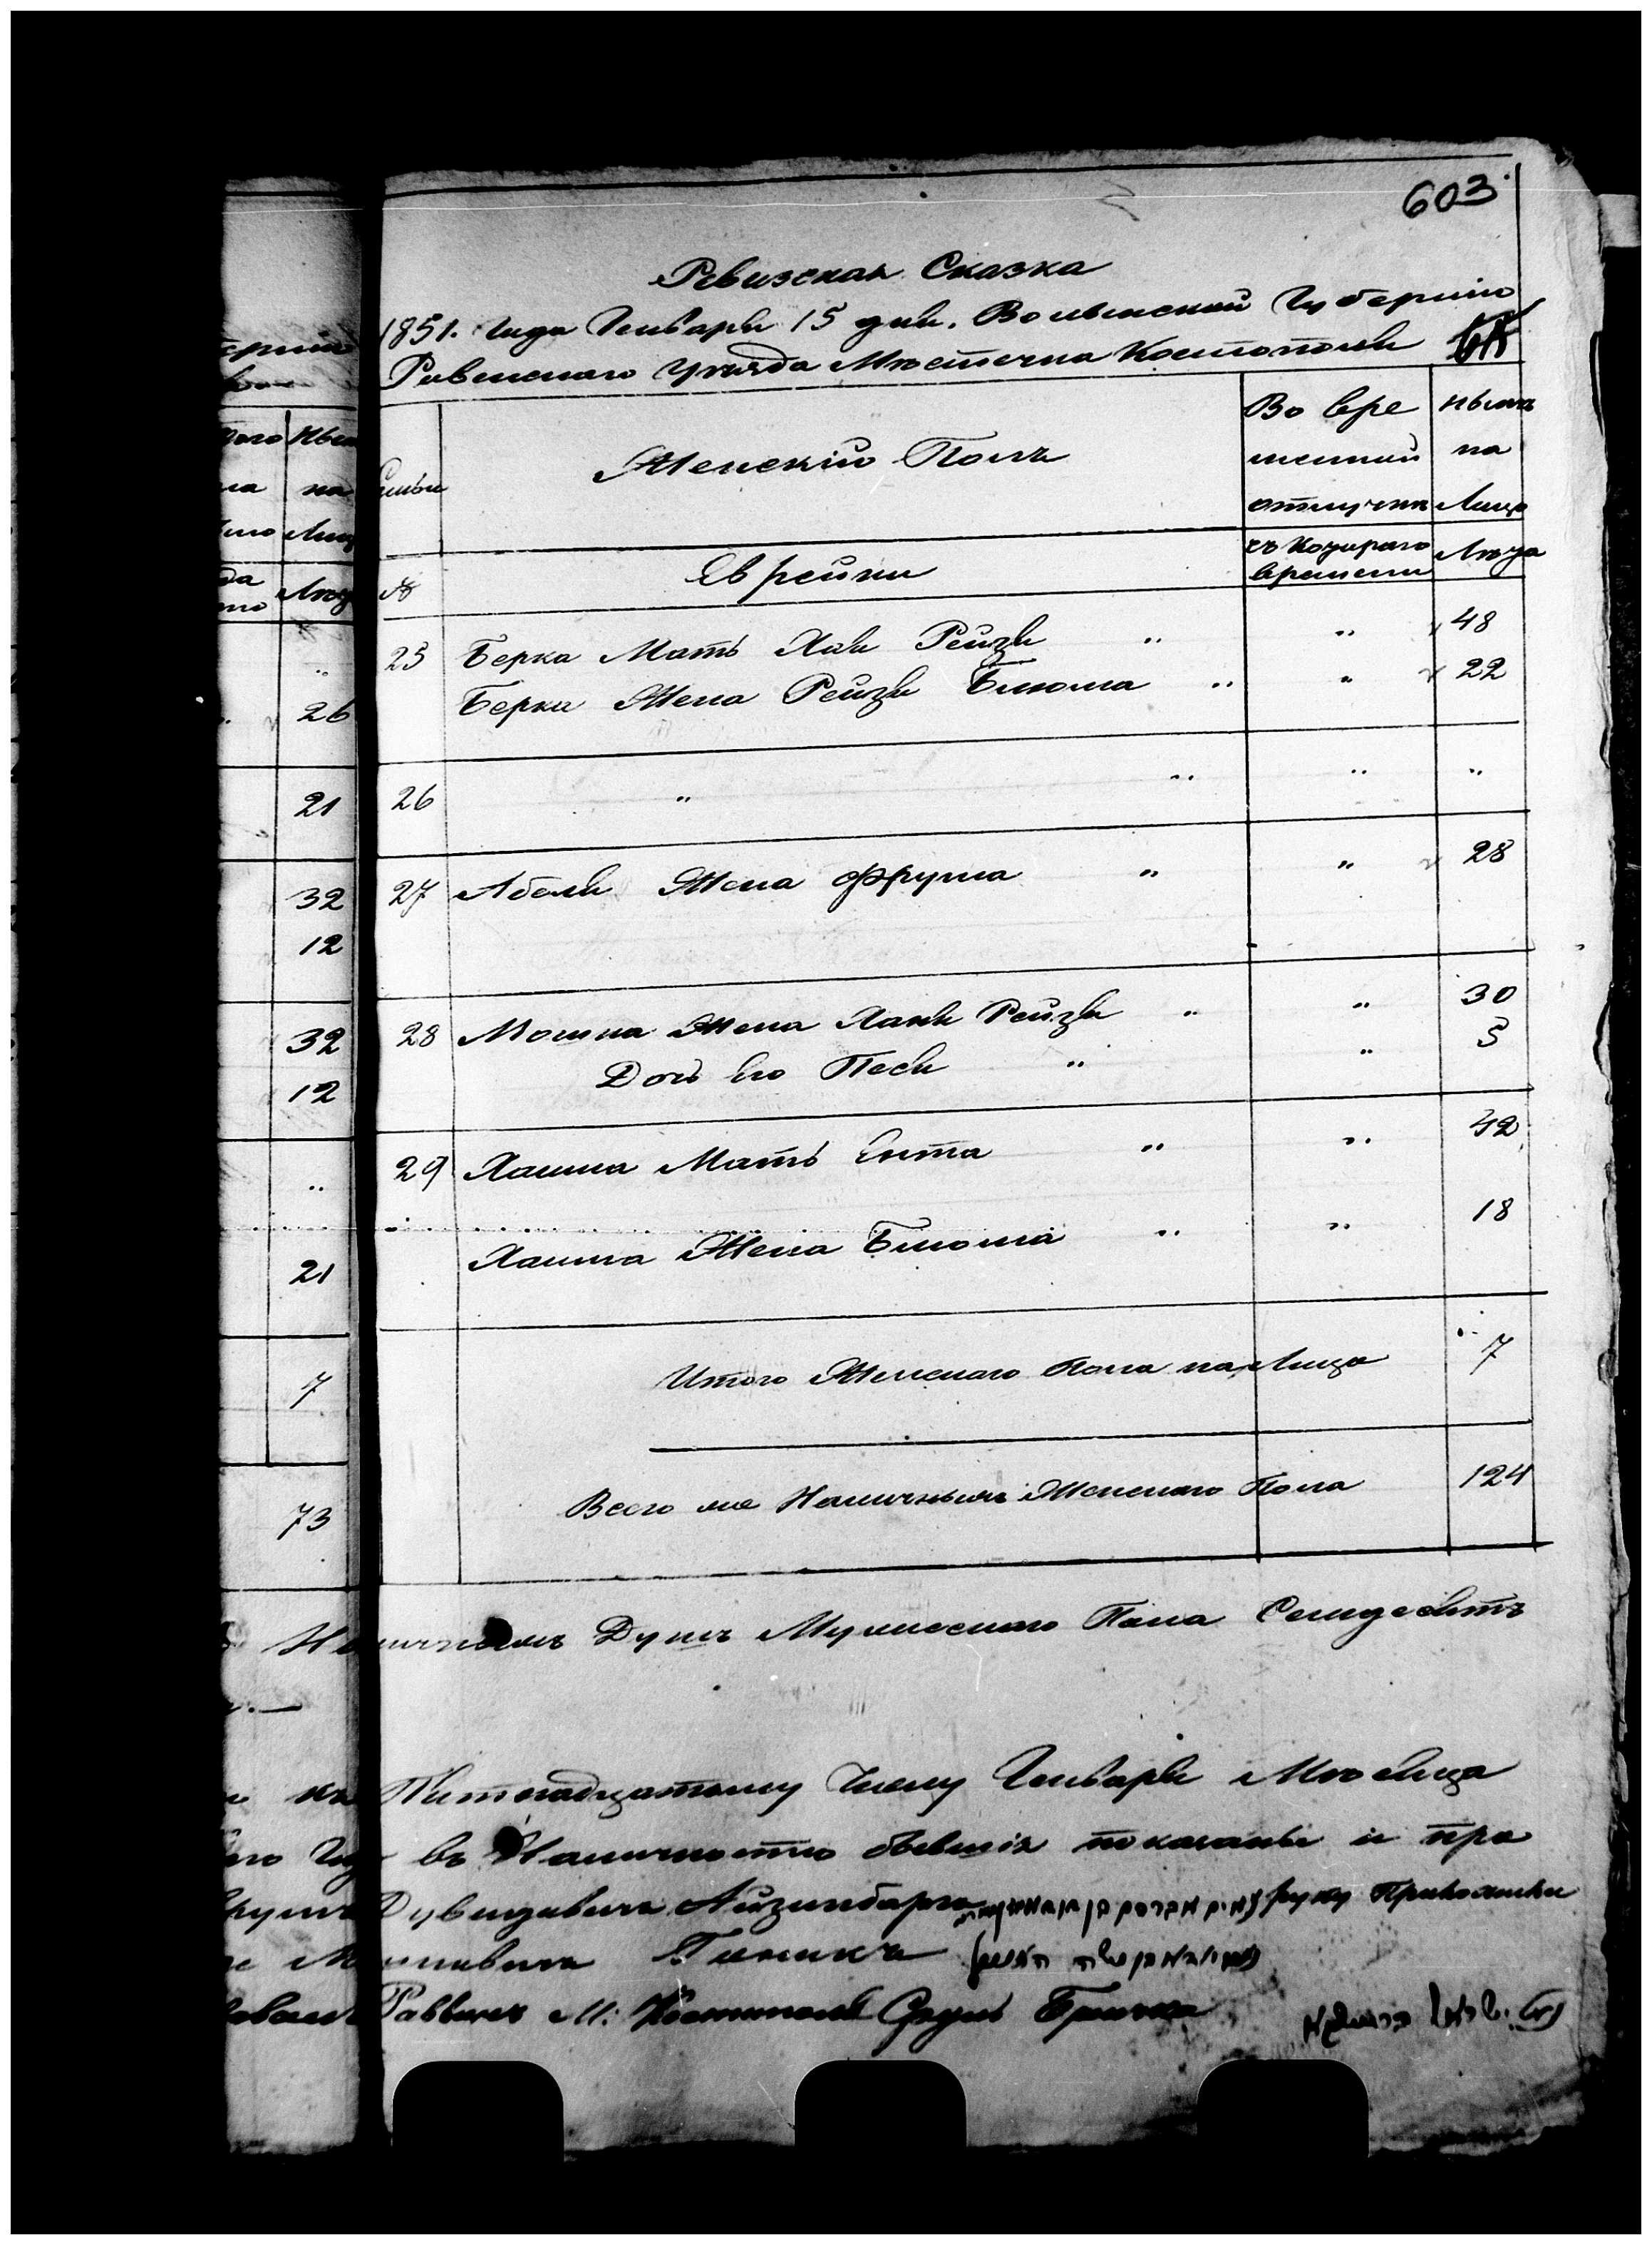 603
Ревизская Сказка
1851. года Генваря 15 дня. Волынской Губерніи
Ровенскаго Уѣзда Мѣстечка Костополя
Семьи
Женскій Полъ
Во вре
менной
отлучкѣ
нынѣ
на
Лицо
№
Еврейки
съ котораго
времени
Лѣта
25 Берка Мать Хая Рейзя " " 48
Берки Жена Рейзя Блюма " " 22
26 " " " "
27 Абеля Жена Фрума " " 28
28 Мошка Жена Хана Рейзя " " 30
Дочь его Песя " " 5
29 Хаима Мать Ента " " 42
Хаима Жена Блюма " " 18
Итого Женскаго Пола на Лицо 7
Всего же Наличныхъ Женскаго Пола 124
ныне
на
Лиц
26
21
32
12
32
12
21
7
73
Наличныхъ Душъ Мужескаго Пола Семидесять
къ Пятнадцатому Числу Генваря Мѣсяца
въ Наличности бывшія показаны и про
Дувидовичъ Айзинбарга руку Приложилъ
Раввинъ М: Костополя Сруль
ישראל